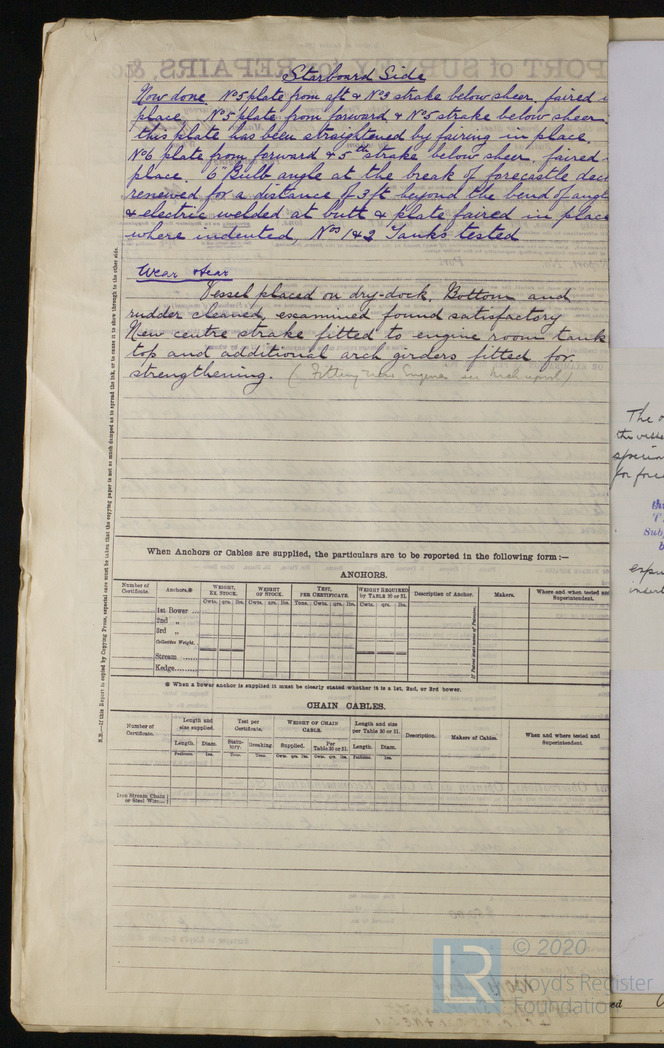 Starboard Side
Now done. No 5 plate from aft & No 3 strake below sheer. faired
place. No 5 plate from forward & No 5 strake below sheer.
this plate has been straightened by fairing in place.
No 6 plate from forward & 5th strake below sheer faired
place. 6" Bulb angle at the break of forecastle dec
renewed for a distance of 3 ft beyond the bend of angle
& electric welded at butt & plate faired in place
where indented, Nos 1 & 2 Tanks tested
Wear & tear
Vessel placed on dry-dock. Bottom and
rudder cleaned, examined found satisfactory
New centre strake fitted to engine room tank
top and additional arch girders fitted for
strengthening. (Fitting New Engines see
N.B.—If this Report is copied by Copying Press, especial care must be taken that the copying paper is not so much damped as to spread the ink, or to cause it to show through to the other side.
When Anchors or Cables are supplied, the particulars are to be reported in the following form:—
ANCHORS.
Number of Certificate. Anchors.* WEIGHT, EX STOCK. WEIGHT OF STOCK. TEST, PER CERTIFICATE. WEIGHT REQUIRED by TABLE 30 or 31. Description of Anchor. Makers. Where and when tested and Superintendent.
Cwts. qrs. lbs. Cwts. qrs. lbs. Tons. Cwts. qrs. lbs. Cwts. qrs. lbs.
1st Bower ...
2nd „
3rd „
Collective Weight.
Stream ......
Kedge.........
If Patent state name of Patentee.
* When a bower anchor is supplied it must be clearly stated whether it is a 1st, 2nd, or 3rd bower.
CHAIN CABLES.
Number of Certificate. Length and size supplied. Test per Certificate. WEIGHT OF CHAIN CABLE. Length and size per Table 30 or 31. Description. Makers of Cables. When and where tested and Superintendent.
Length. Diam. Statutory. Breaking. Supplied. Per Table 30 or 31. Length. Diam.
Fathoms. Ins. Tons. Tons. Cwts. qrs. lbs. Cwts. qrs. lbs. Fathoms. Ins.
Iron Stream Chain or Steel Wire...
The
the vesse
for
Sub
© 2020
LR
Lloyd's Register
Foundation